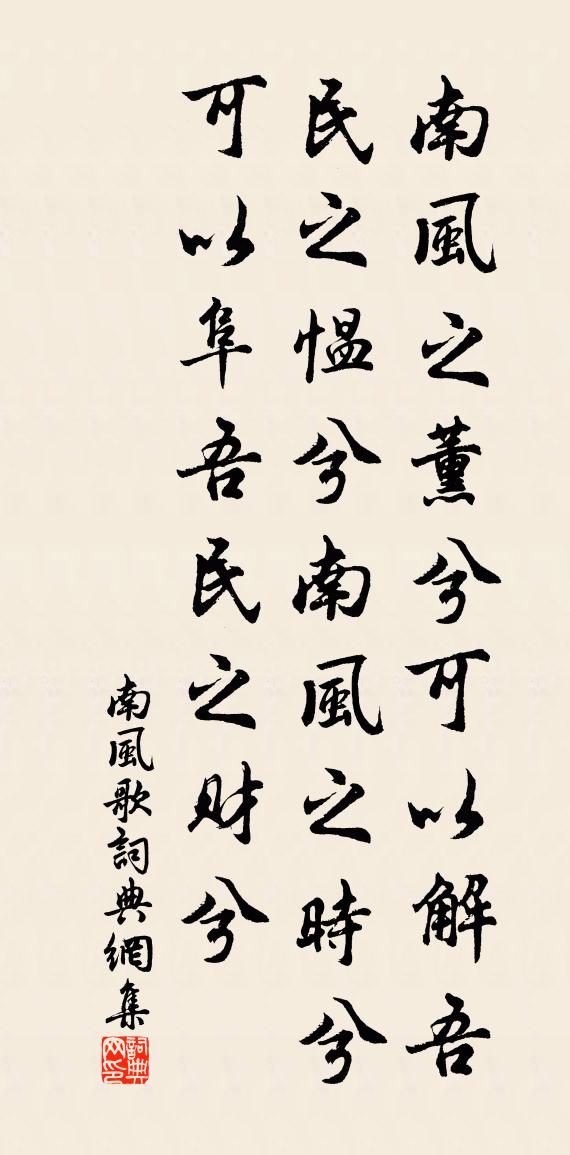 南風之薰兮可以解吾
民之愠兮南風之時兮
可以阜吾民之財兮
南風歌詞典網集
詞典网印